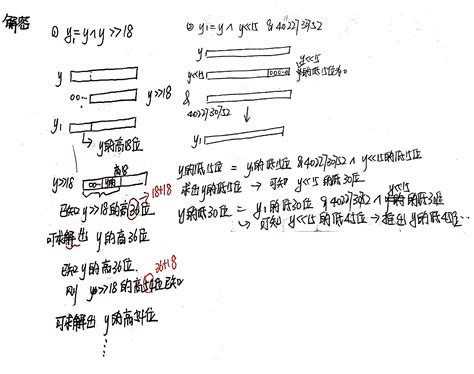 解密
① y₁=y∧y>>18
y
00…
y>>18
y₁
y的高18位
y>>18
高18
已知 y>>18的高36位
18+18
可求解出 y的高36位
已知 y的高36位.
36+18
则 y>>18的高54位已知
可求解出 y的高54位
⋮
② y₁=y∧y<<15 & 4022730752
y
y<<15
000…0
y<<15
的低15位为0
&
4022730752
y₁
y的低15位 = y₁的低15位 & 4022730752 ∧ y<<15的低15位
求出y的低15位 → 可知 y<<15的低30位
y的低30位 = y₁的低30位 & 4022730752 ∧ y<<15的低30位
↪ 可知 y<<15的低45位 → 推出 y的低45位…